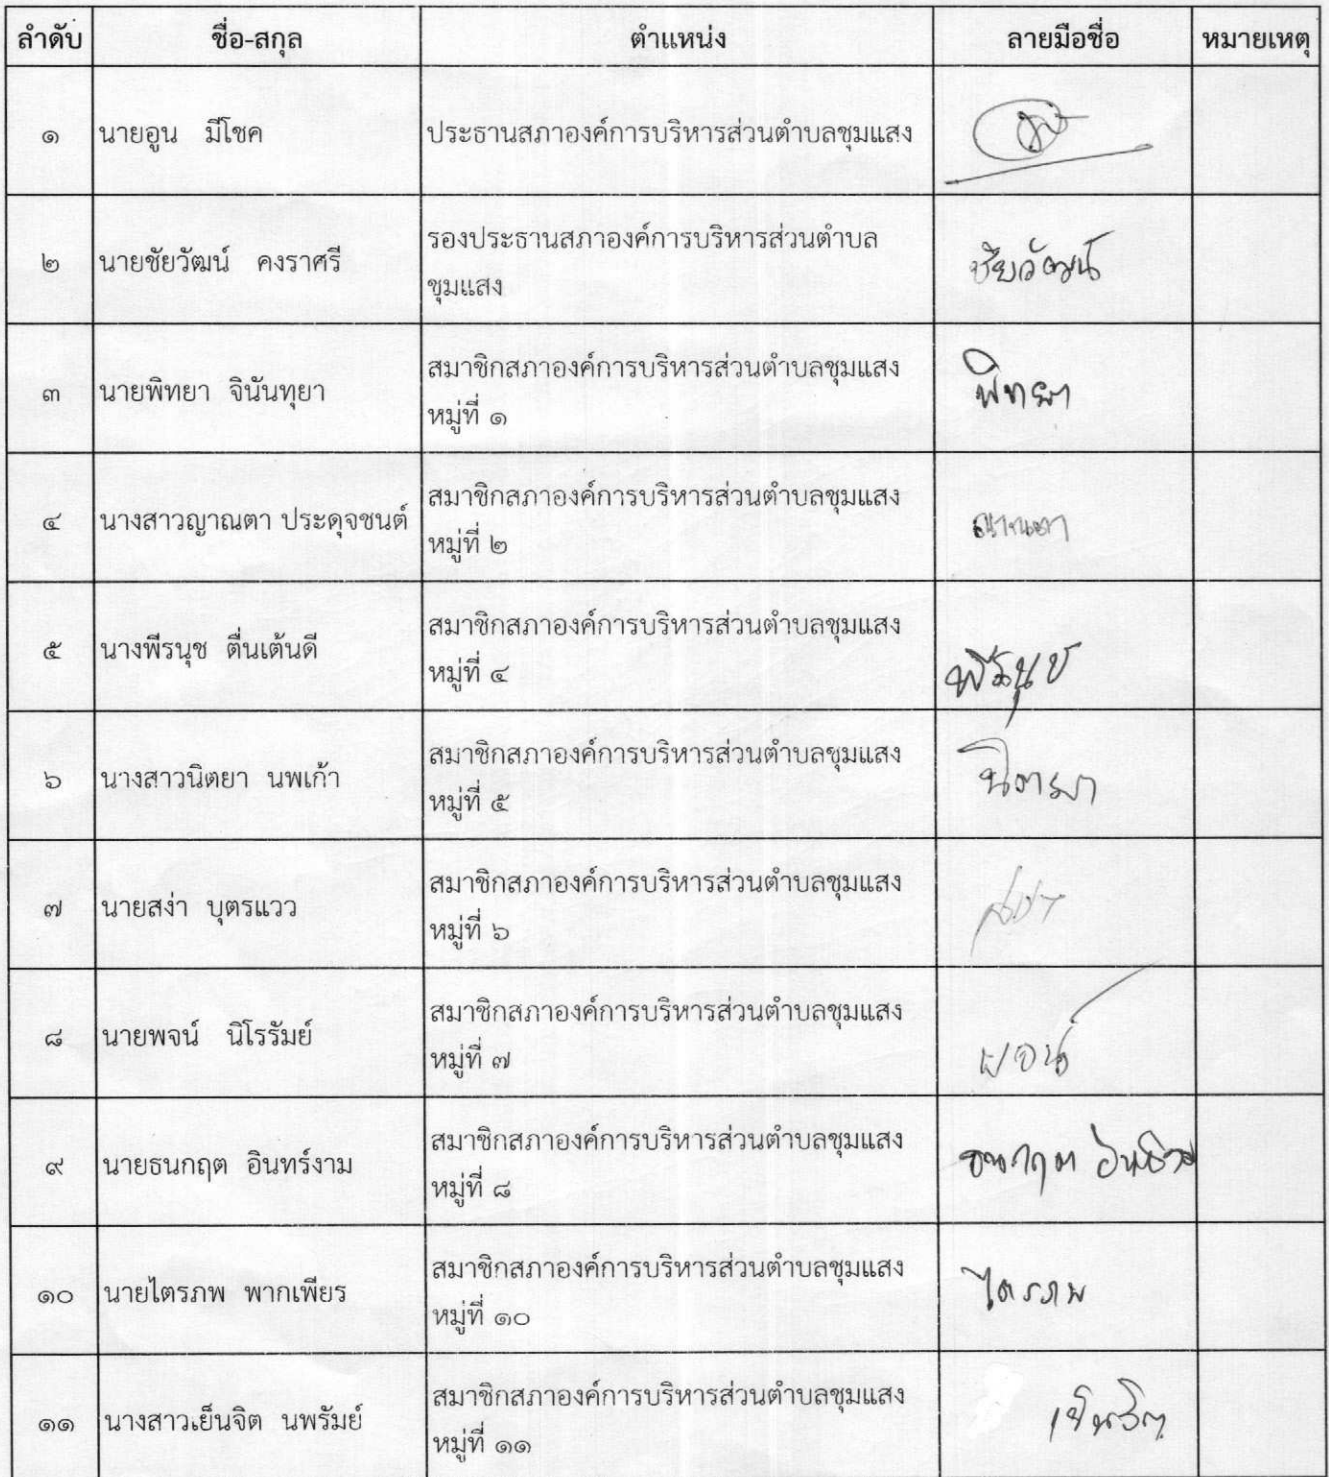 ลำดับ ชื่อ-สกุล ตำแหน่ง ลายมือชื่อ หมายเหตุ
๑ นายอูน มีโชค ประธานสภาองค์การบริหารส่วนตำบลชุมแสง
๒ นายชัยวัฒน์ คงราศรี รองประธานสภาองค์การบริหารส่วนตำบล ชัยวัฒน์
ชุมแสง
๓ นายพิทยา จินันทุยา สมาชิกสภาองค์การบริหารส่วนตำบลชุมแสง พิทยา
หมู่ที่ ๑
๔ นางสาวญาณตา ประดุจชนต์ สมาชิกสภาองค์การบริหารส่วนตำบลชุมแสง ญาณตา
หมู่ที่ ๒
๕ นางพีรนุช ตื่นเต้นดี สมาชิกสภาองค์การบริหารส่วนตำบลชุมแสง พีรนุช
หมู่ที่ ๔
๖ นางสาวนิตยา นพเก้า สมาชิกสภาองค์การบริหารส่วนตำบลชุมแสง นิตยา
หมู่ที่ ๕
๗ นายสง่า บุตรแวว สมาชิกสภาองค์การบริหารส่วนตำบลชุมแสง สง่า
หมู่ที่ ๖
๘ นายพจน์ นิโรรัมย์ สมาชิกสภาองค์การบริหารส่วนตำบลชุมแสง พจน์
หมู่ที่ ๗
๙ นายธนกฤต อินทร์งาม สมาชิกสภาองค์การบริหารส่วนตำบลชุมแสง ธนกฤต
หมู่ที่ ๘
๑๐ นายไตรภพ พากเพียร สมาชิกสภาองค์การบริหารส่วนตำบลชุมแสง ไตรภพ
หมู่ที่ ๑๐
๑๑ นางสาวเย็นจิต นพรัมย์ สมาชิกสภาองค์การบริหารส่วนตำบลชุมแสง เย็นจิต
หมู่ที่ ๑๑